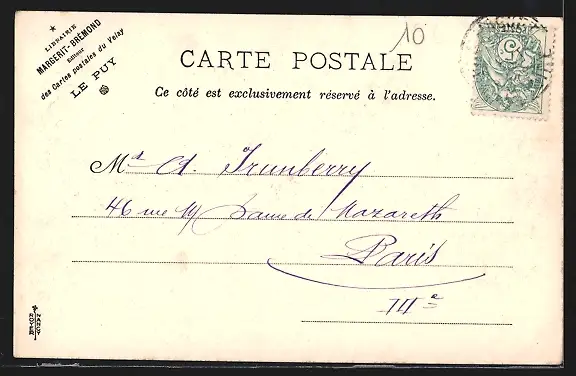 LIBRAIRIE
MARGERIT-BRÉMOND
ÉDITEUR
des Cartes postales du Velay
LE PUY
10
CARTE POSTALE
Ce côté est exclusivement réservé à l'adresse.
5
Md A. Trunberry
46 rue N Dame de Nazareth
Paris
III e
ROYER
NANCY